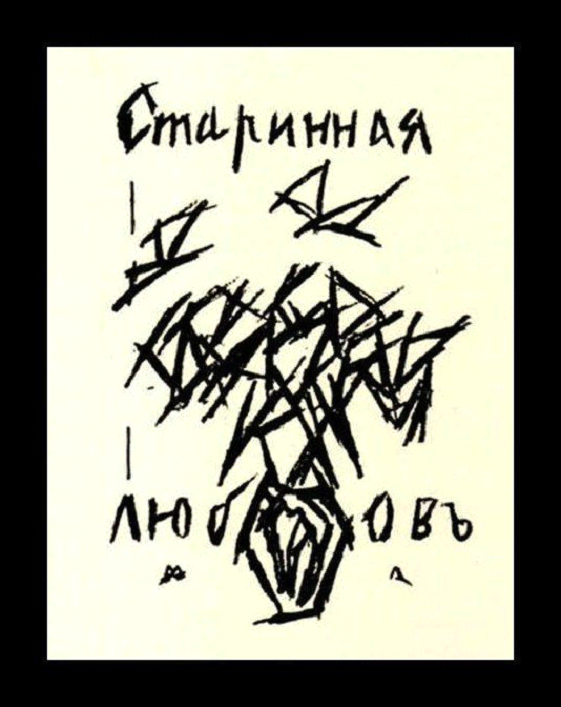 Старинная
любовъ